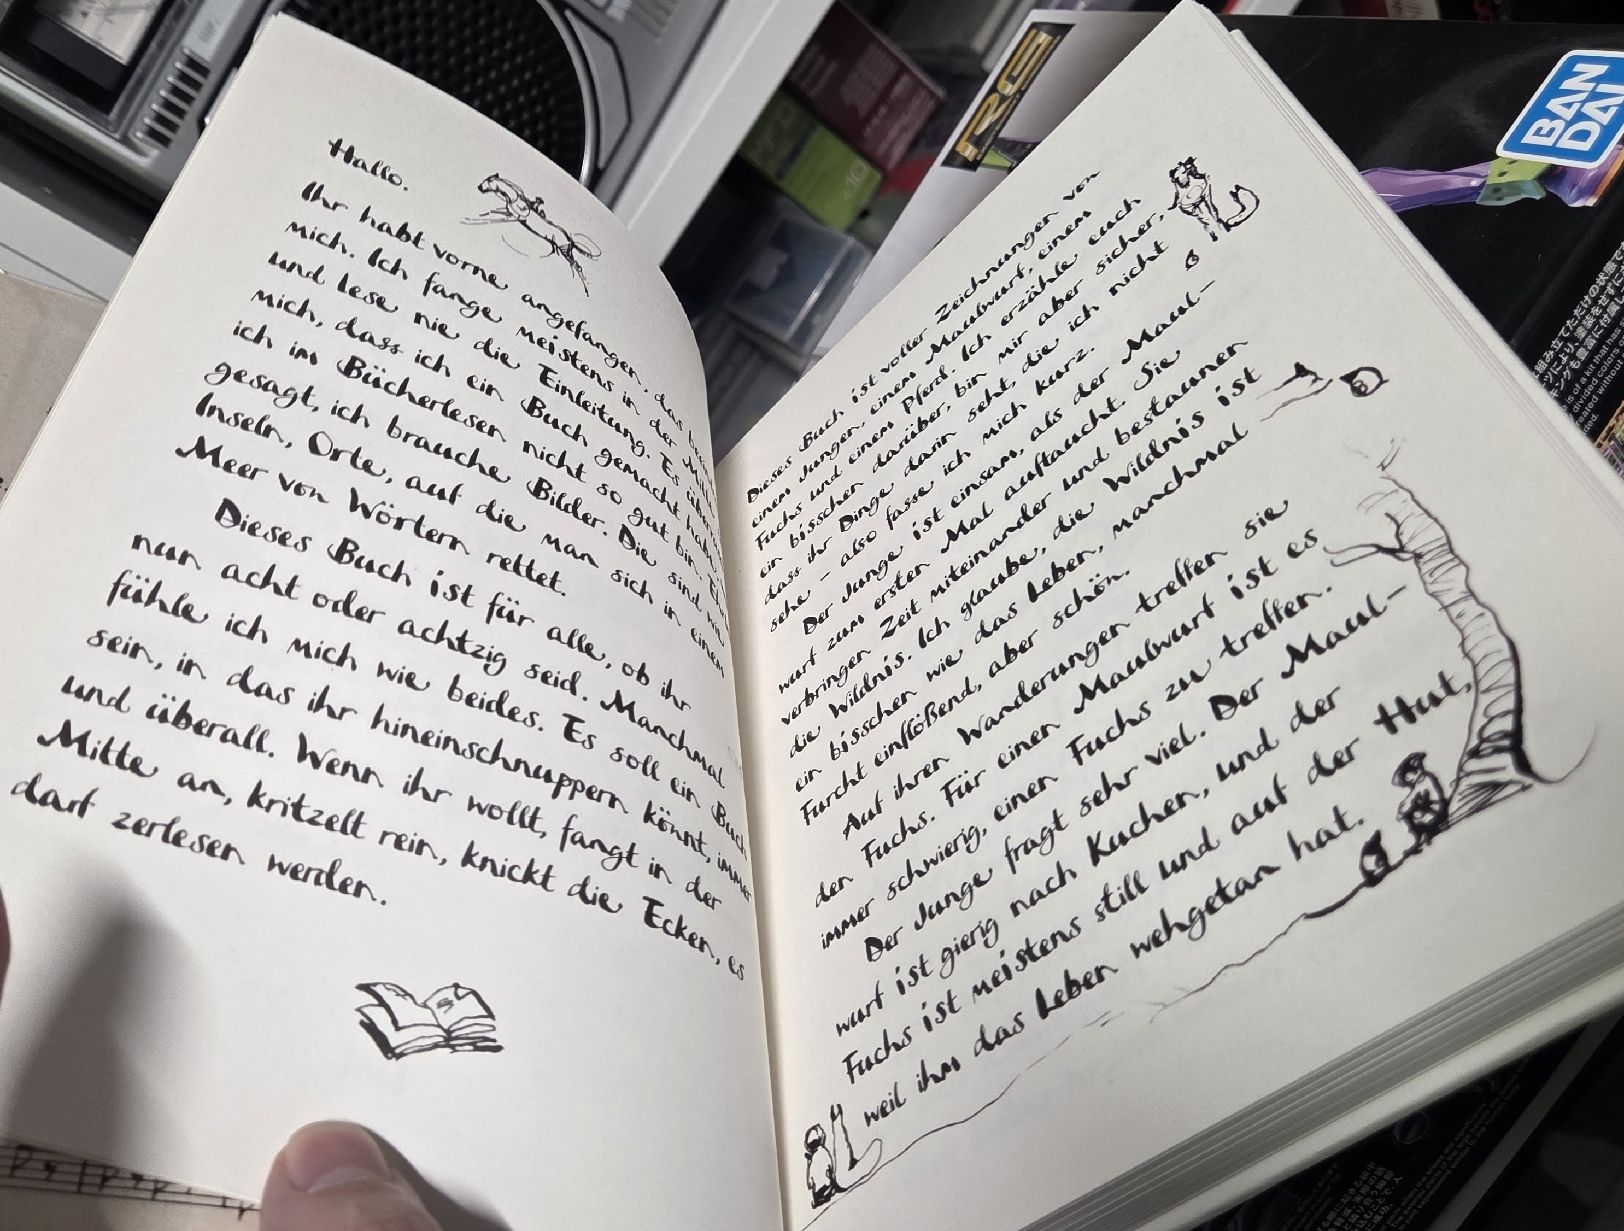 Hallo.
Ihr habt vorne angefangen, das
mich. Ich fange meistens in der
und lese nie die Einleitung. Es
mich, dass ich ein Buch gemacht
ich im Bücherlesen nicht so gut bin.
gesagt, ich brauche Bilder. Die sind wie
Inseln, Orte, auf die man sich in einem
Meer von Wörtern rettet.
Dieses Buch ist für alle, ob ihr
nun acht oder achtzig seid. Manchmal
fühle ich mich wie beides. Es soll ein Buch
sein, in das ihr hineinschnuppern könnt, immer
und überall. Wenn ihr wollt, fangt in der
Mitte an, kritzelt rein, knickt die Ecken, es
darf zerlesen werden.
Dieses Buch ist voller Zeichnungen von
einem Jungen, einem Maulwurf, einem
Fuchs und einem Pferd. Ich erzähle euch
ein bisschen darüber, bin mir aber sicher,
dass ihr Dinge darin seht, die ich nicht
sehe – also fasse ich mich kurz.
Der Junge ist einsam, als der Maul-
wurf zum ersten Mal auftaucht. Sie
verbringen Zeit miteinander und bestaunen
die Wildnis. Ich glaube, die Wildnis ist
ein bisschen wie das Leben, manchmal
Furcht einflößend, aber schön.
Auf ihren Wanderungen treffen sie
den Fuchs. Für einen Maulwurf ist es
immer schwierig, einen Fuchs zu treffen.
Der Junge fragt sehr viel. Der Maul-
wurf ist gierig nach Kuchen, und der
Fuchs ist meistens still und auf der Hut,
weil ihm das Leben wehgetan hat.
RG
BAN
DAI